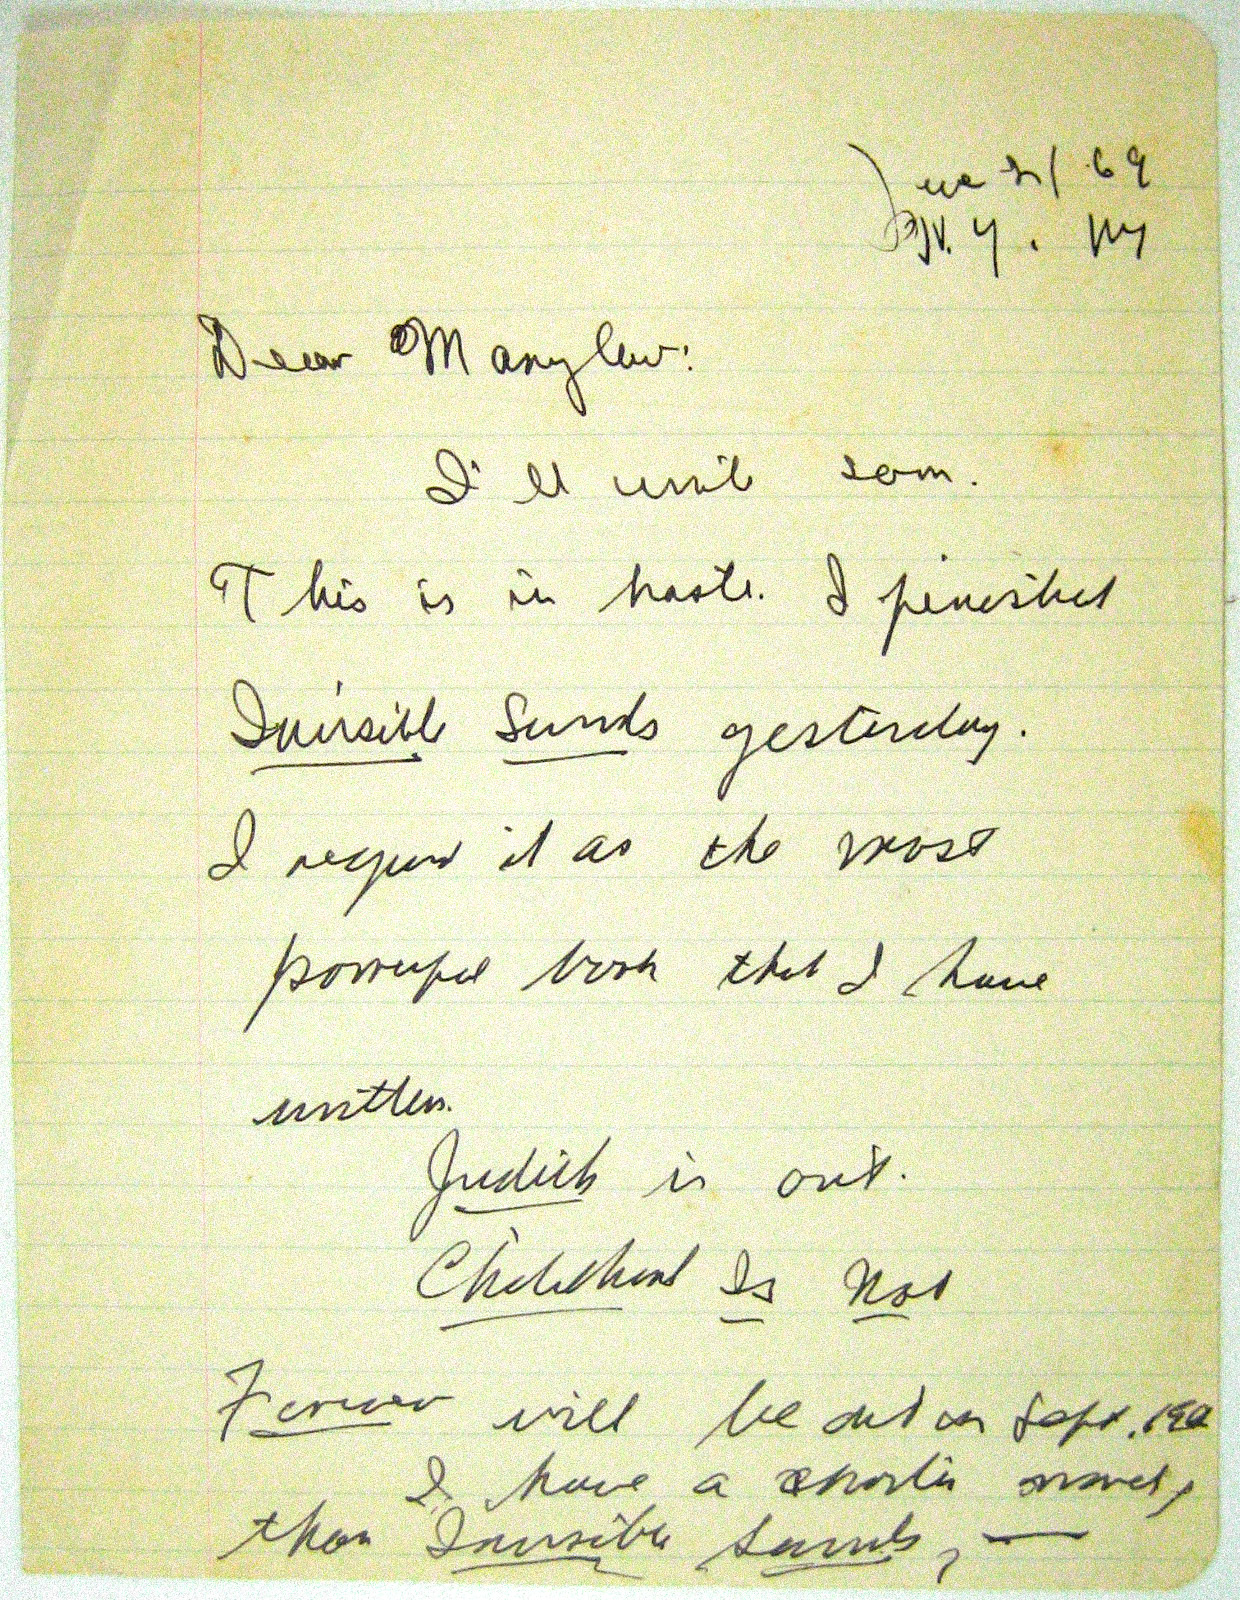 June 21/69
N.Y. NY
Dear Marylou:
I'll write soon.
This is in haste. I finished
Invisible Swords yesterday.
I regard it as the most
powerful book that I have
written.
Judith is out.
Childhood Is Not
Forever will be out on Sept.
I have a shorter novel,
than Invisible Swords, —